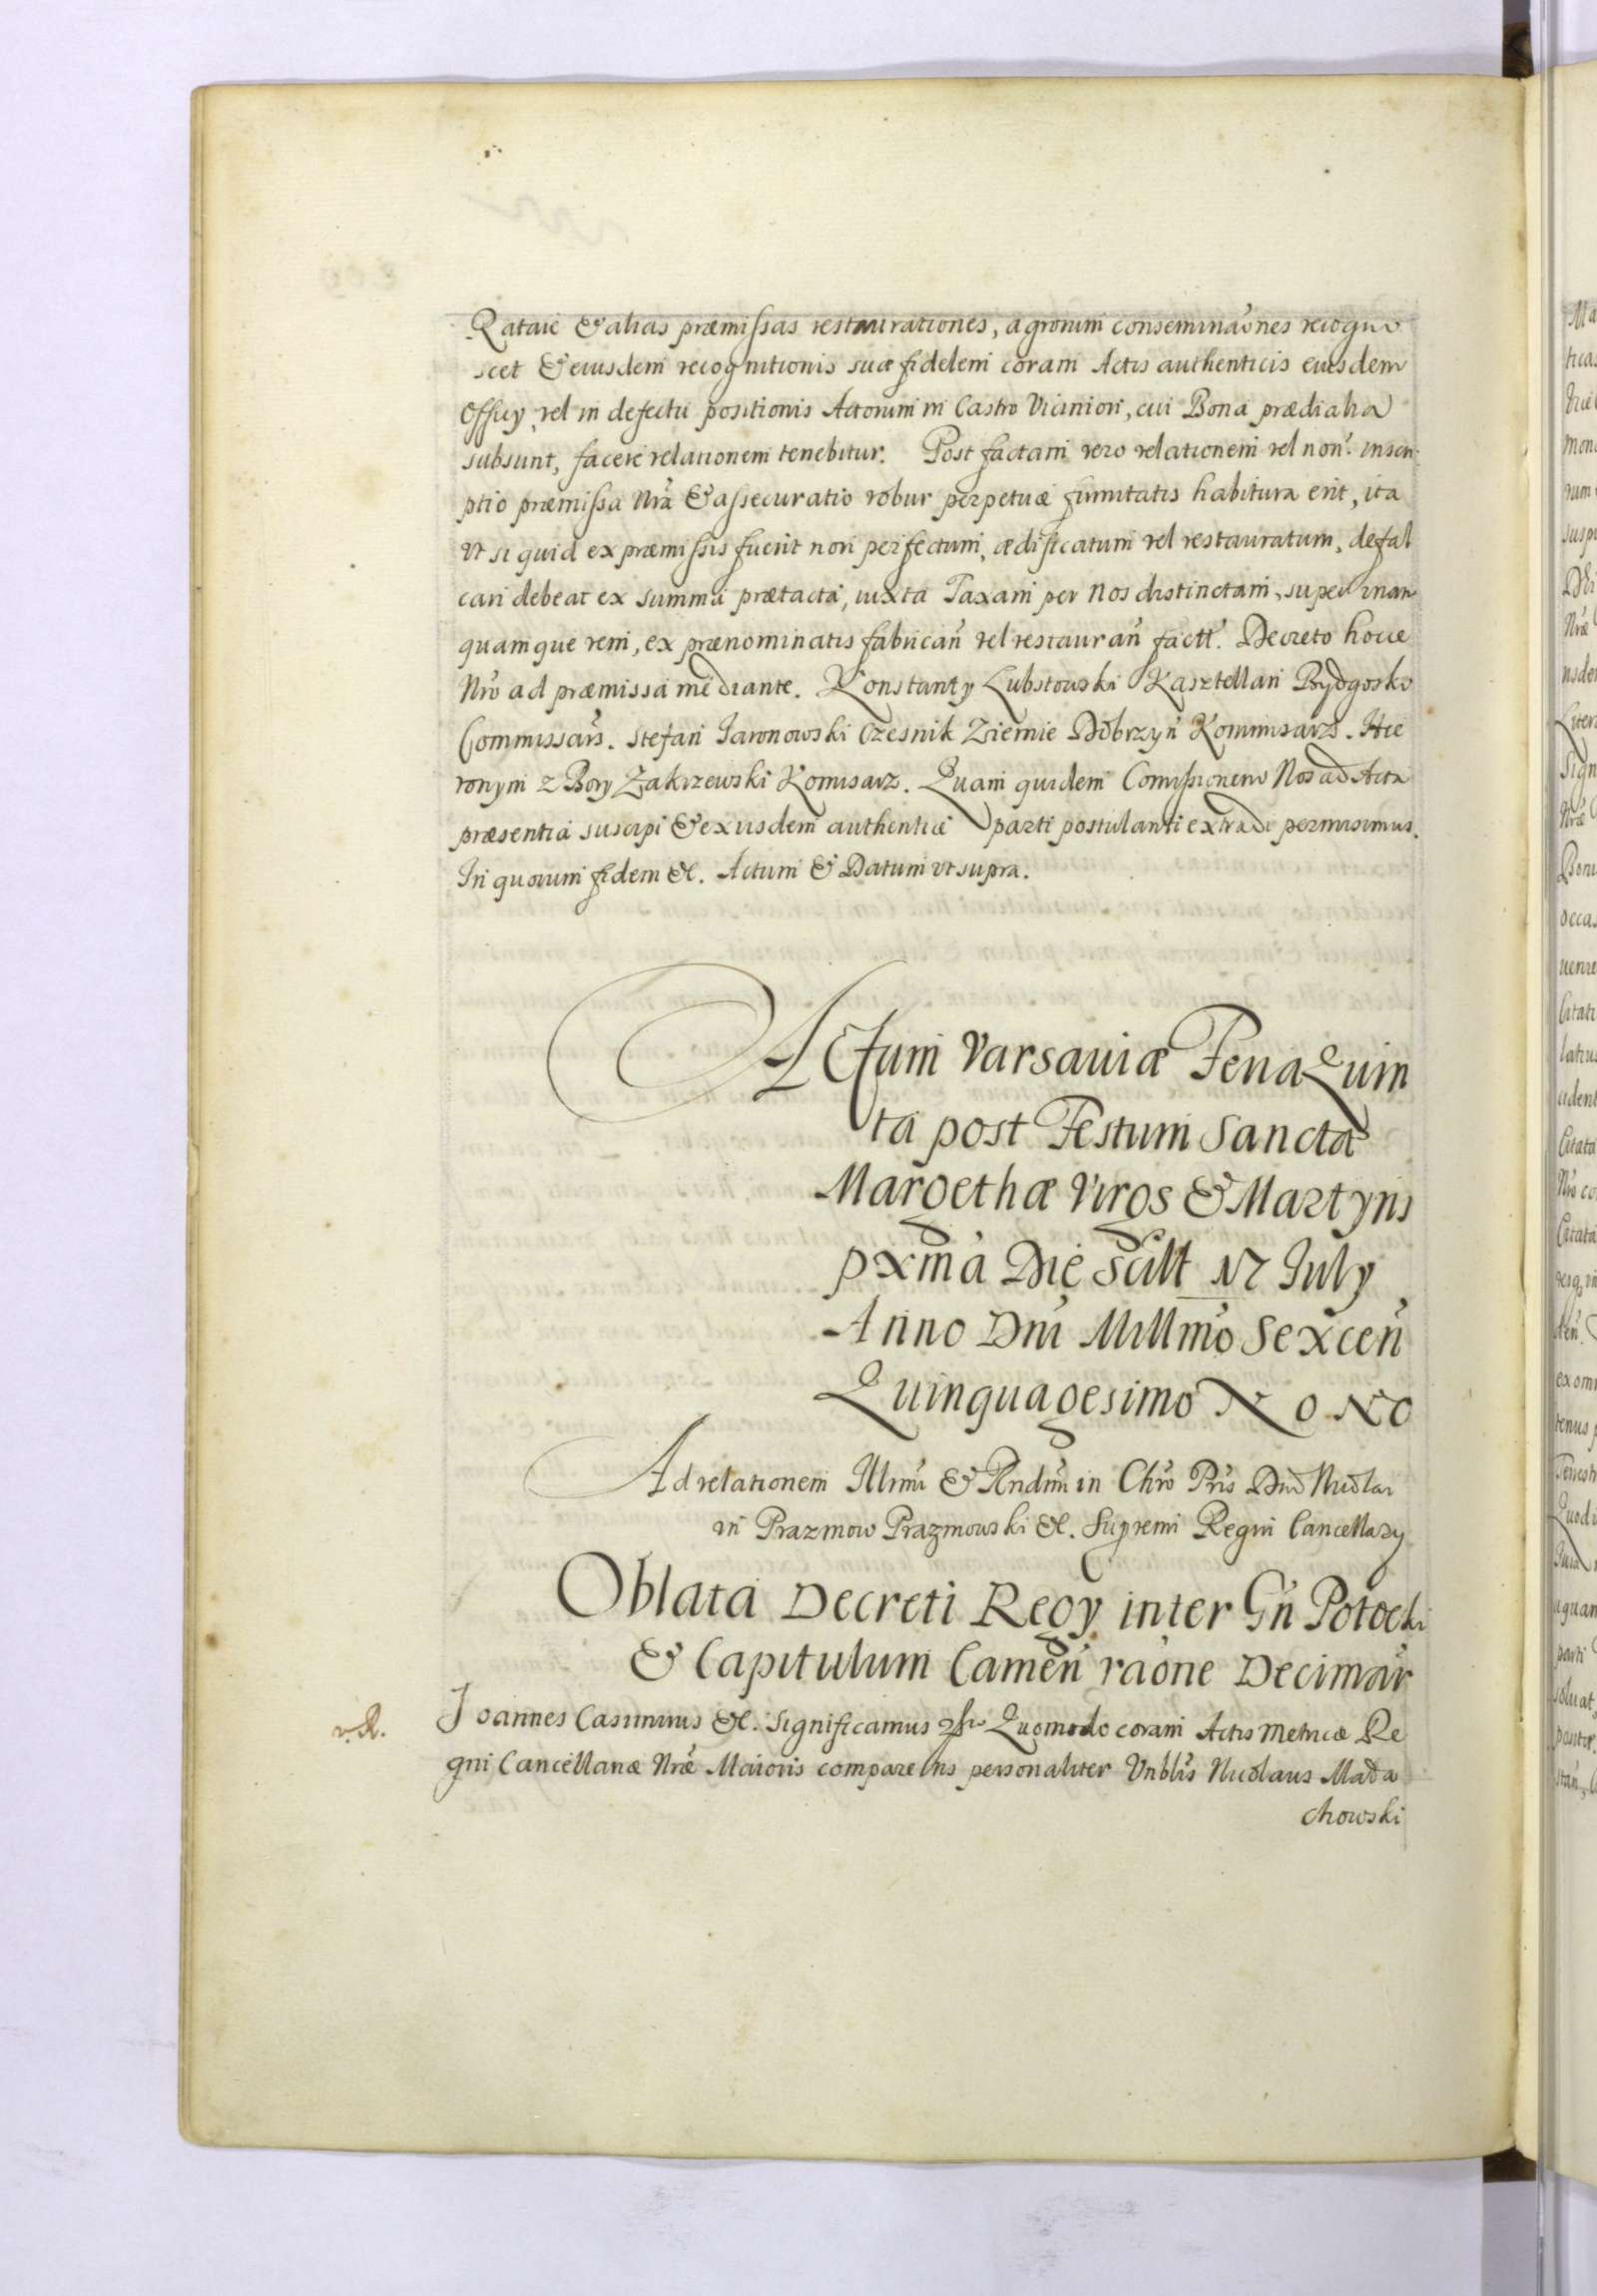 Rataie & alias præmissas restaurationes, agrorum conseminãones recogno
scet & eiusdem recognitionis suæ fidelem coram Actis authenticis eiusdem
Officy, vel in defectu positionis Actorum in Castro Viciniori, cui Bona prædialia
subsunt, facere relationem tenebitur. Post factam vero relationem vel non: inscri
ptio præmissa Nrã & assecuratio robur perpetuæ firmitatis habitura erit, ita
vt si quid ex præmissis fuerit non perfectum, ædificatum vel restauratum, defal
cari debeat ex summa prætacta, iuxta Taxam per Nos distinctam, super vnam
quamque rem, ex prænominatis fabrican̄ vel restauran̄ factt. Decreto hocce
Nrõ ad præmissa mediante. Konstanty Lubstowski Kasztellan Bydgoski
Commissar̃s. Stefan Jaronowski Czesnik Ziemie Dobrzyń Kommisarz. Hie
ronym z Bory Zakrzewski Komisarz. Quam quidem Comissionem Nos ad Acta
præsentia suscipi & ex iisdem authentice parti postulanti extradi permisimus.
In quorum fidem &c. Actum & Datum vt supra.
ACtum Varsaviæ Feria Quin
ta post Festum Sanctæ
Margethæ Virgs & Martyris
pxma Die Scilt 17 July
Anno Dni Millmo Sexcen̄
Quinquagesimo NoNo
Ad relationem Illmi & Rndmi in Chro Pris Dni Nicolai
in Prazmow Prazmowski &c. Supremi Regni Cancellary
Oblata Decreti Regy inter Gn̄ Potocki
& Capitulum Camen̄ raõne Decimar̃
v. R.
Joannes Casimirus &c. Significamus Quomodo coram Actis Metricæ Re
gni Cancellariæ Nræ Maioris comparens personaliter Vnblis Nicolaus Mada
chowski